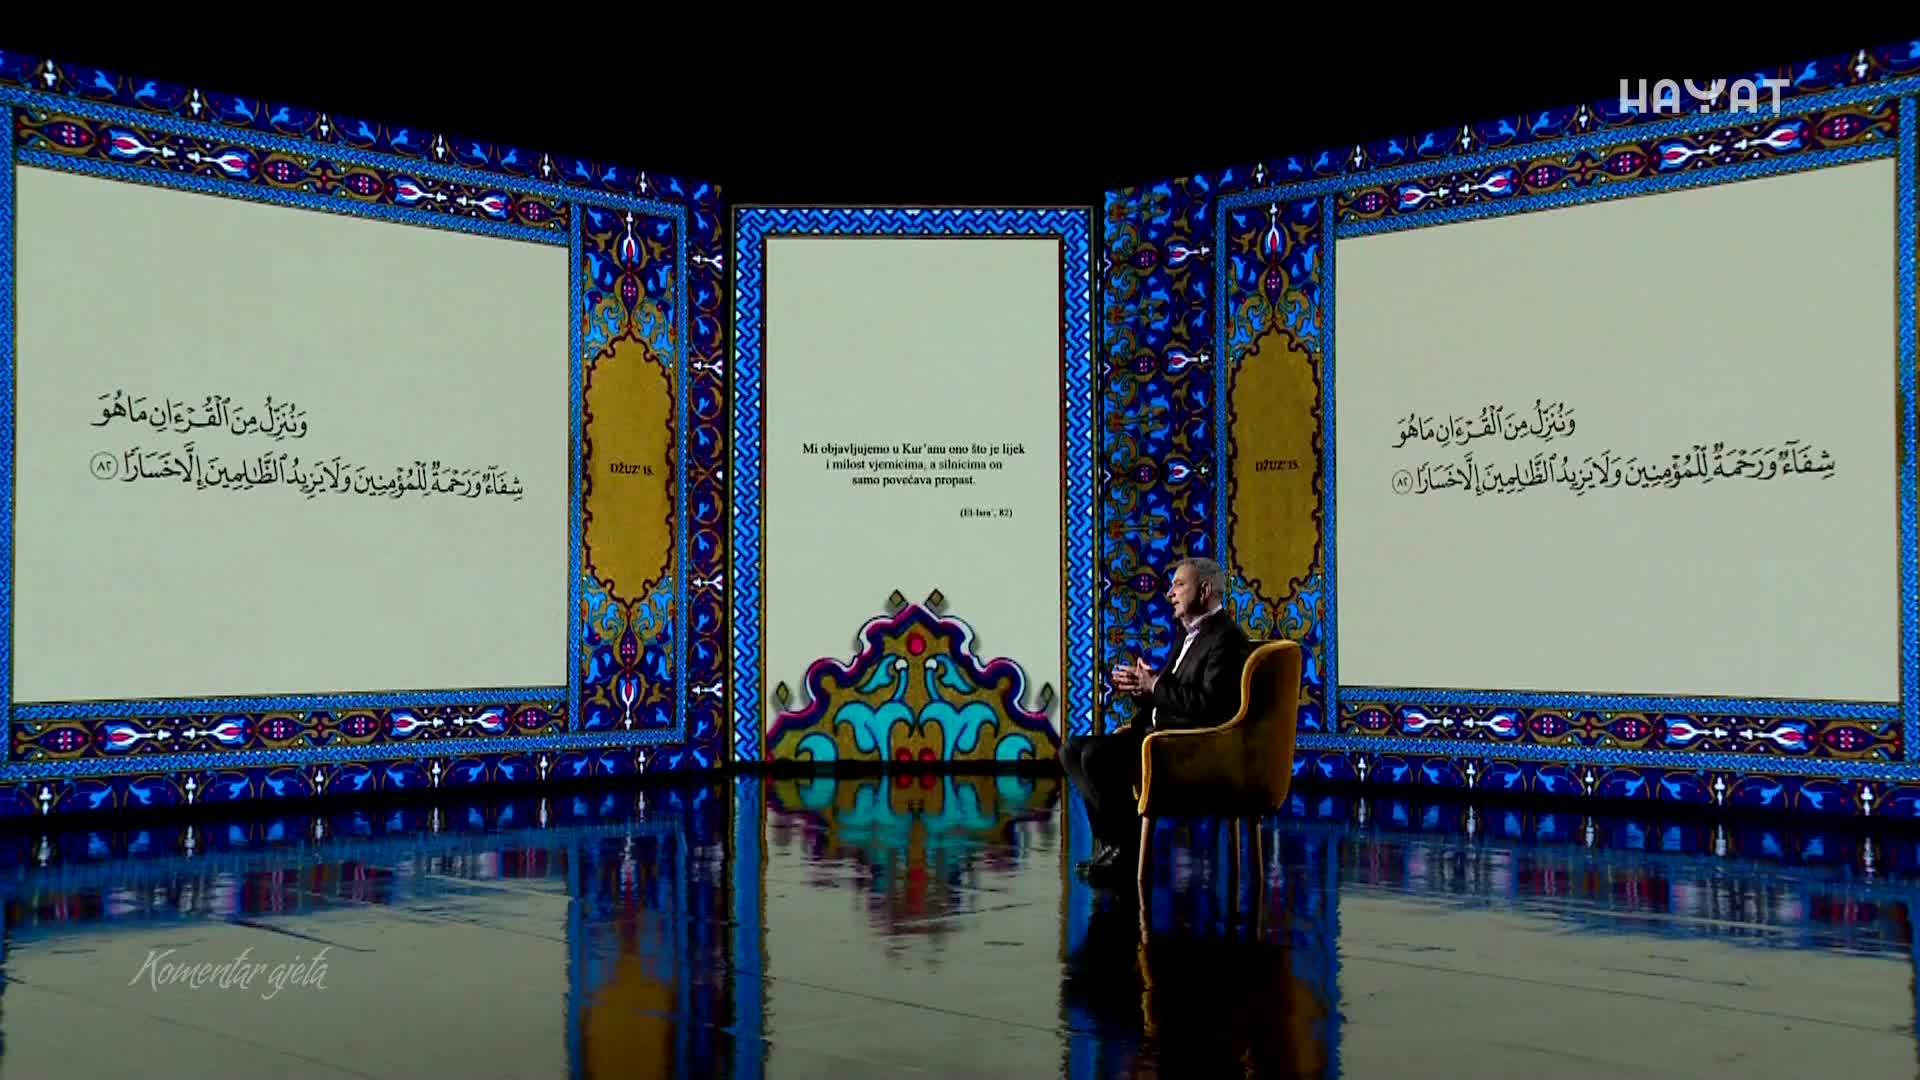 HAYAT
وَنُنَزِّلُ مِنَ ٱلْقُرْءَانِ مَا هُوَ
شِفَآءٌ وَرَحْمَةٌ لِّلْمُؤْمِنِينَ وَلَا يَزِيدُ ٱلظَّٰلِمِينَ إِلَّا خَسَارًا ٨٢
DŽUZ' 15.
Mi objavljujemo u Kur'anu ono što je lijek
i milost vjernicima, a silnicima on
samo povećava propast.
(El-Isra', 82)
DŽUZ' 15.
وَنُنَزِّلُ مِنَ ٱلْقُرْءَانِ مَا هُوَ
شِفَآءٌ وَرَحْمَةٌ لِّلْمُؤْمِنِينَ وَلَا يَزِيدُ ٱلظَّٰلِمِينَ إِلَّا خَسَارًا ٨٢
Komentar ajeta